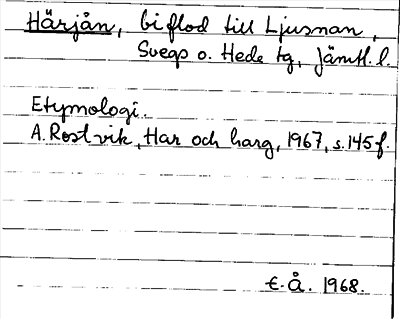 Härjån, biflod till Ljusnan,
Svegs o. Hede tg, Jämtl. l.
Etymologi.
A. Rostvik, Har och harg, 1967, s. 145 f.
E. Å. 1968.